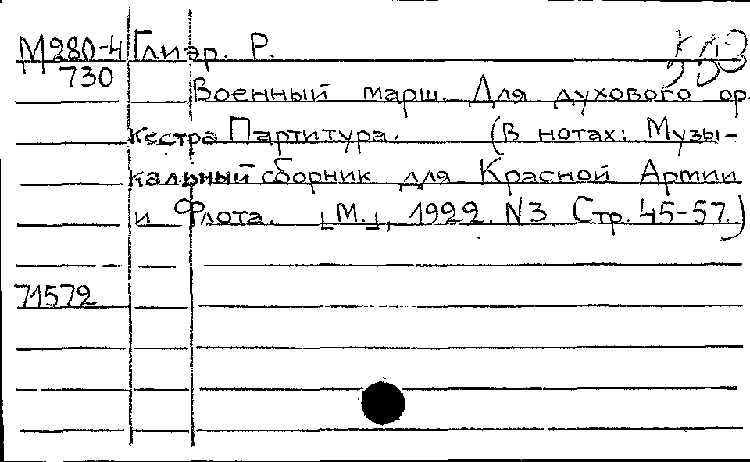 М980-4 Глиэр. Р.
730
Военный марш. Для духового ор
кестра Партитура. (В нотах: Музы-
кальный сборник для Красной Армии
и Флота. [М.], 1922. N3 Стр. 45-57.)
71572